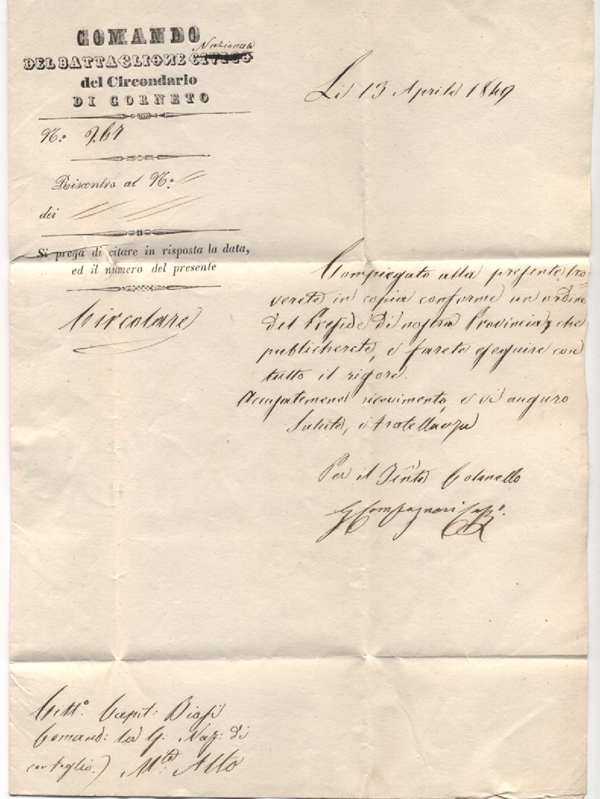 COMANDO
Nazionale
DEL BATTAGLIONE CIVICO
del Circondario
DI CORNETO
N.º 264
Riscontro al N.º
dei
Si prega di citare in risposta la data,
ed il numero del presente
Circolare
Li 13 Aprile 1849
Compiegato alla presente tro
verete in copia conforme un ordine
del Preside di nostra Provincia, che
publicherete, e farete eseguire con
tutto il rigore.
Accusatemene ricevimento, e vi auguro
Salute, e Fratellanza
Per il Colonello
G Compagnoni
Capit: Biasi
Comand: la G. Naz: di
M.te Alto